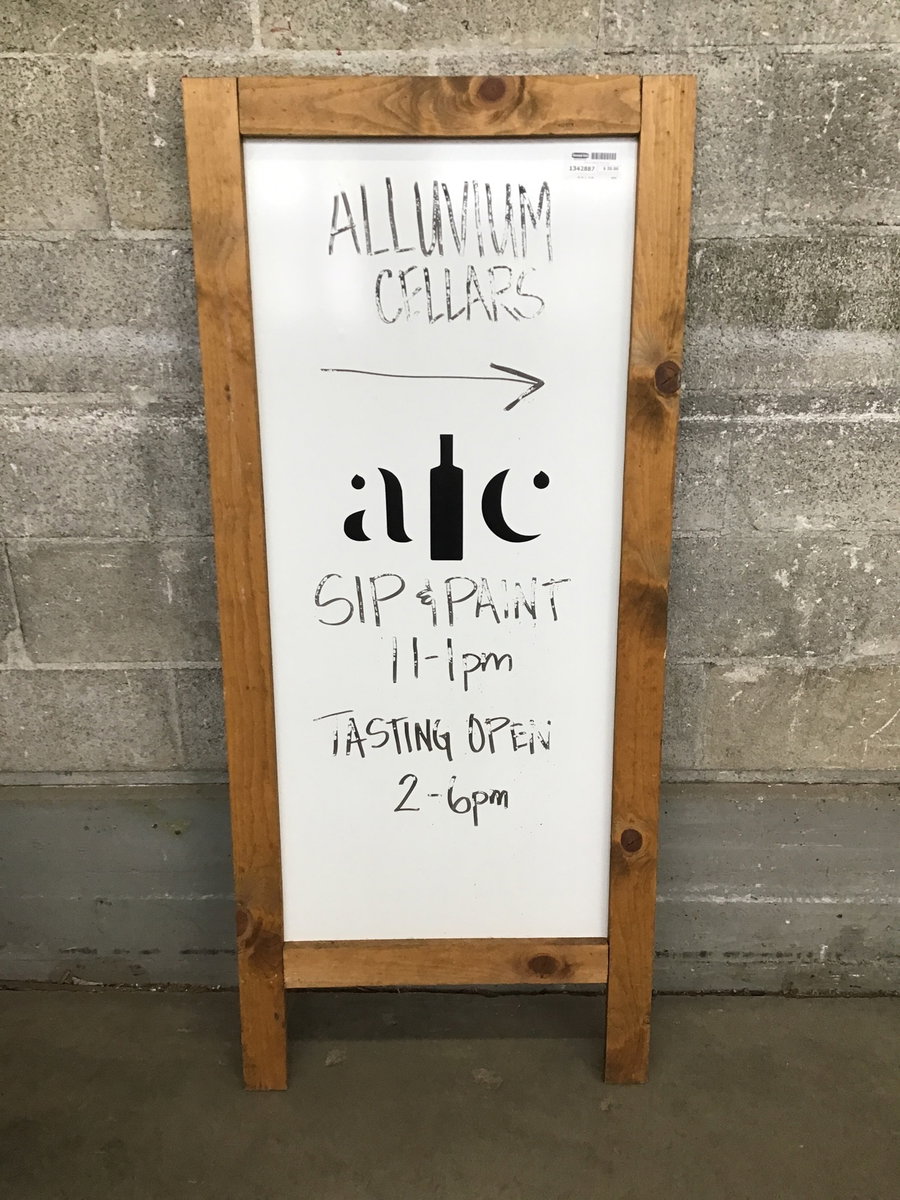 1342887
ALLUVIUM
CELLARS
a c
SIP & PAINT
11-1pm
TASTING OPEN
2-6pm